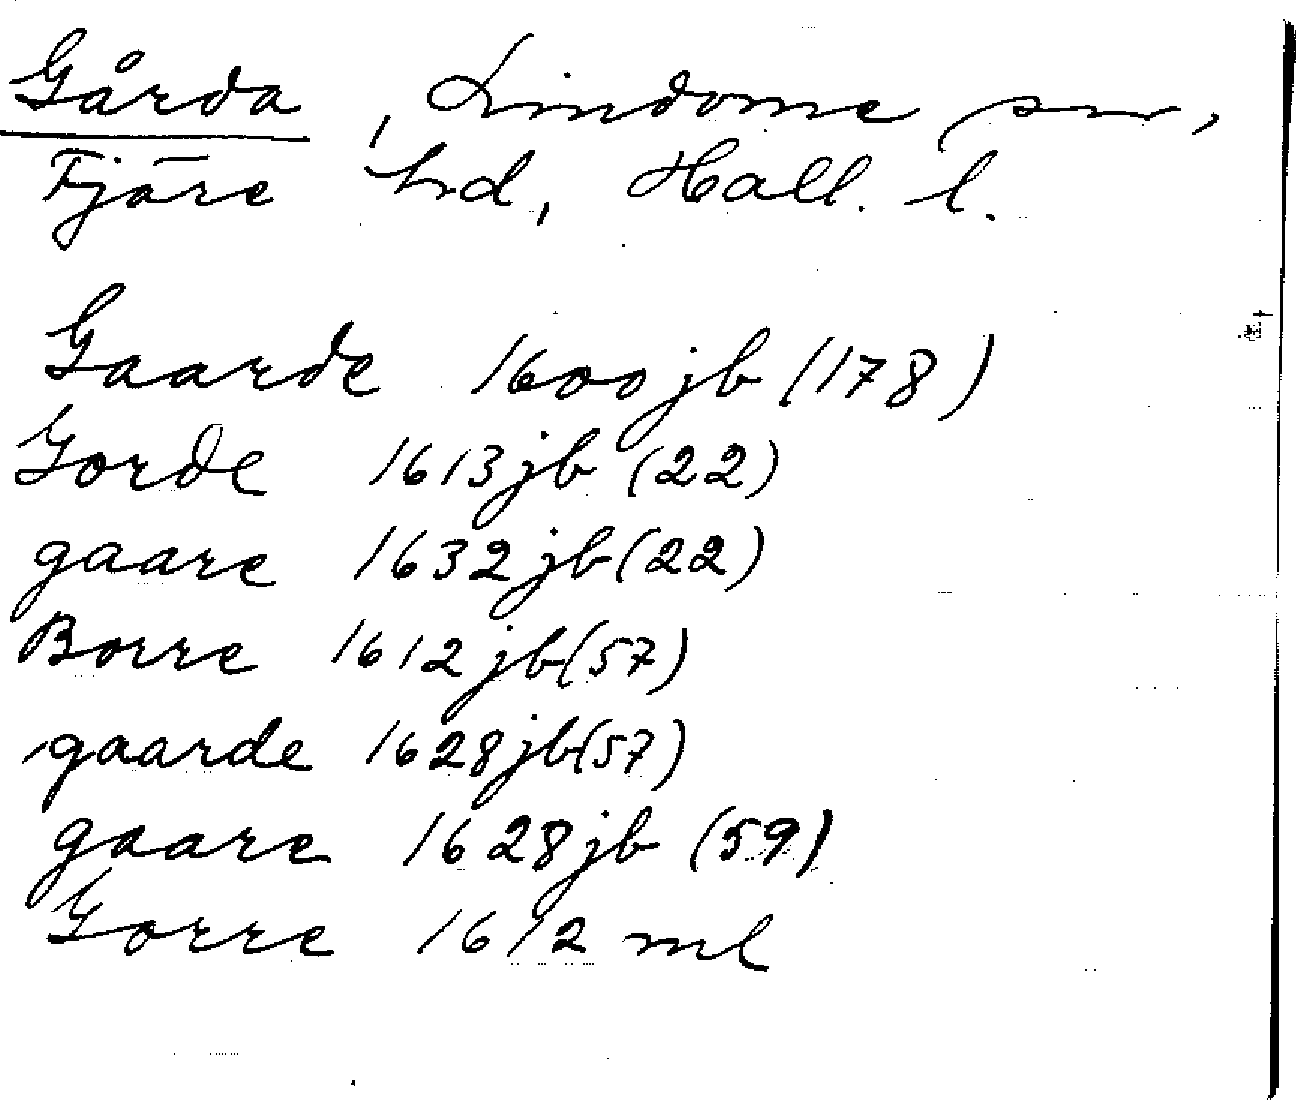 Gårda, Lindome sn,
Fjäre hd, Hall. l.
Gaarde 1600 jb (178)
Gorde 1613 jb (22)
gaare 1632 jb (22)
Borre 1612 jb (57)
gaarde 1628 jb (57)
gaare 1628 jb (59)
Gorre 1612 ml